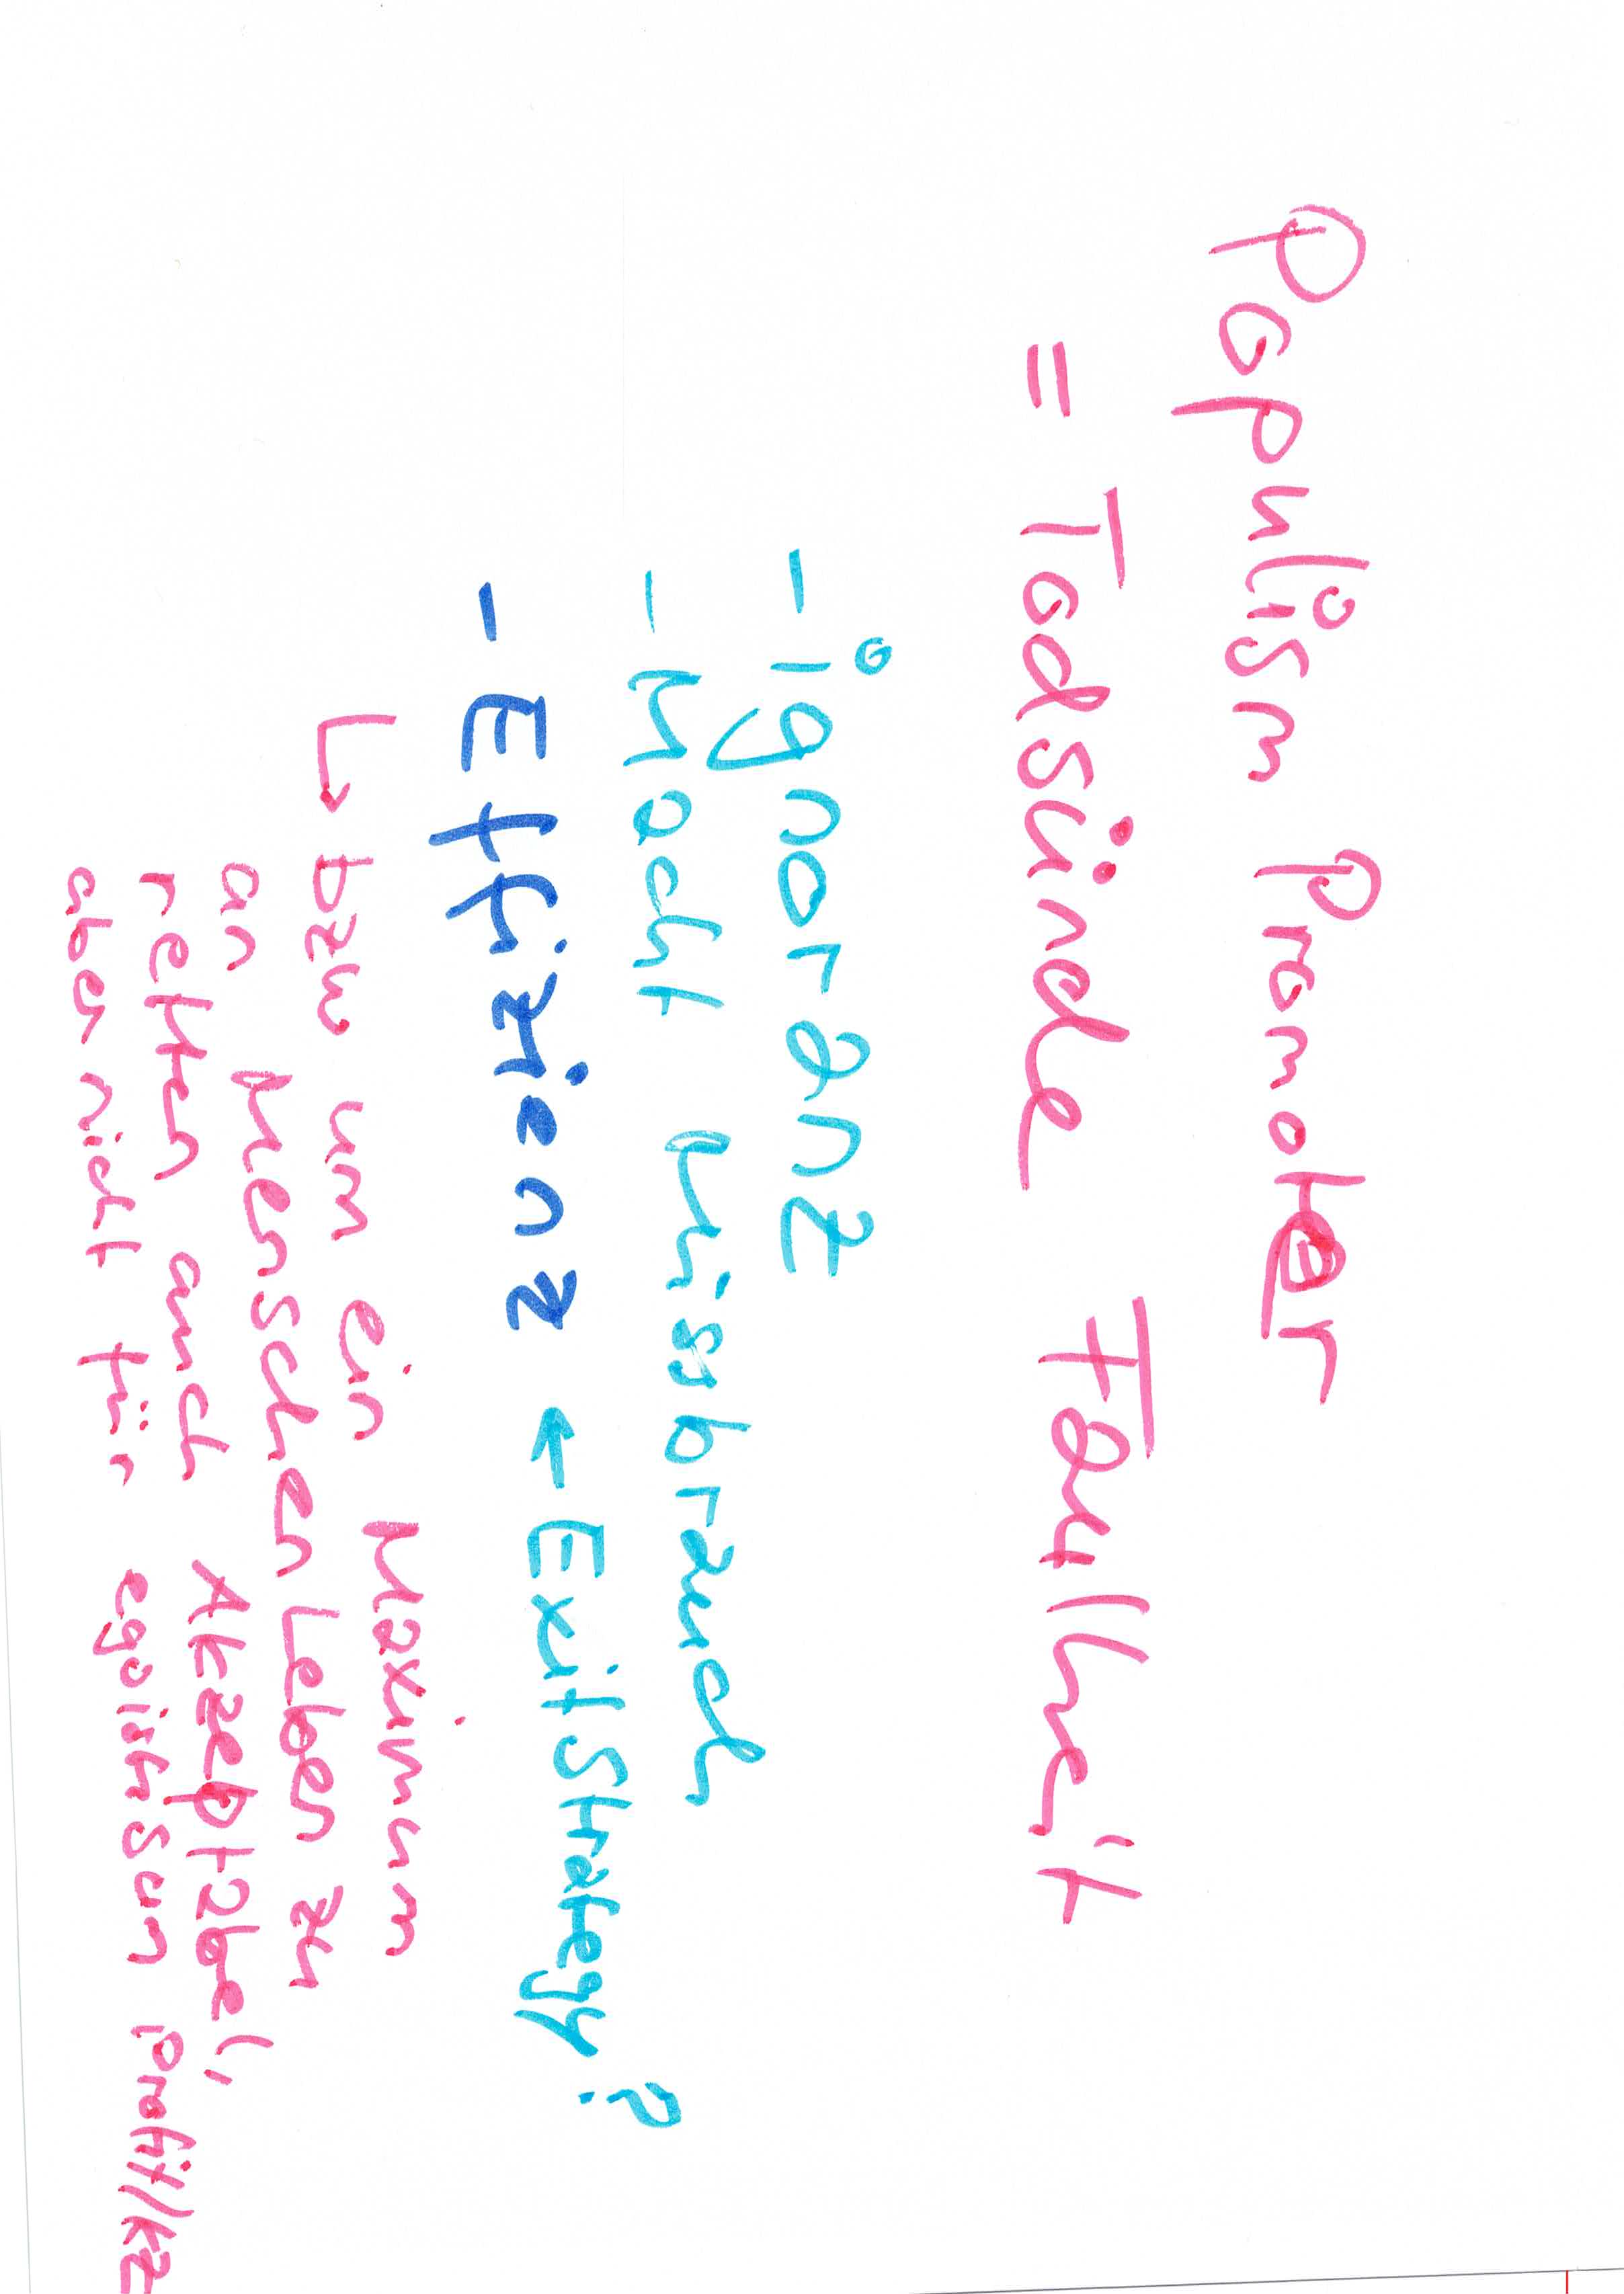 Populism Promoter
= Todsünde Faulheit
- ignoranz
- Macht Missbrauch
- Effizienz ← Exit Strategy?
↳ bzw um ein Maximum
an MenschenLeben zu
retten auch Akzeptabel,
aber nicht für egoistischen Profit/KZ